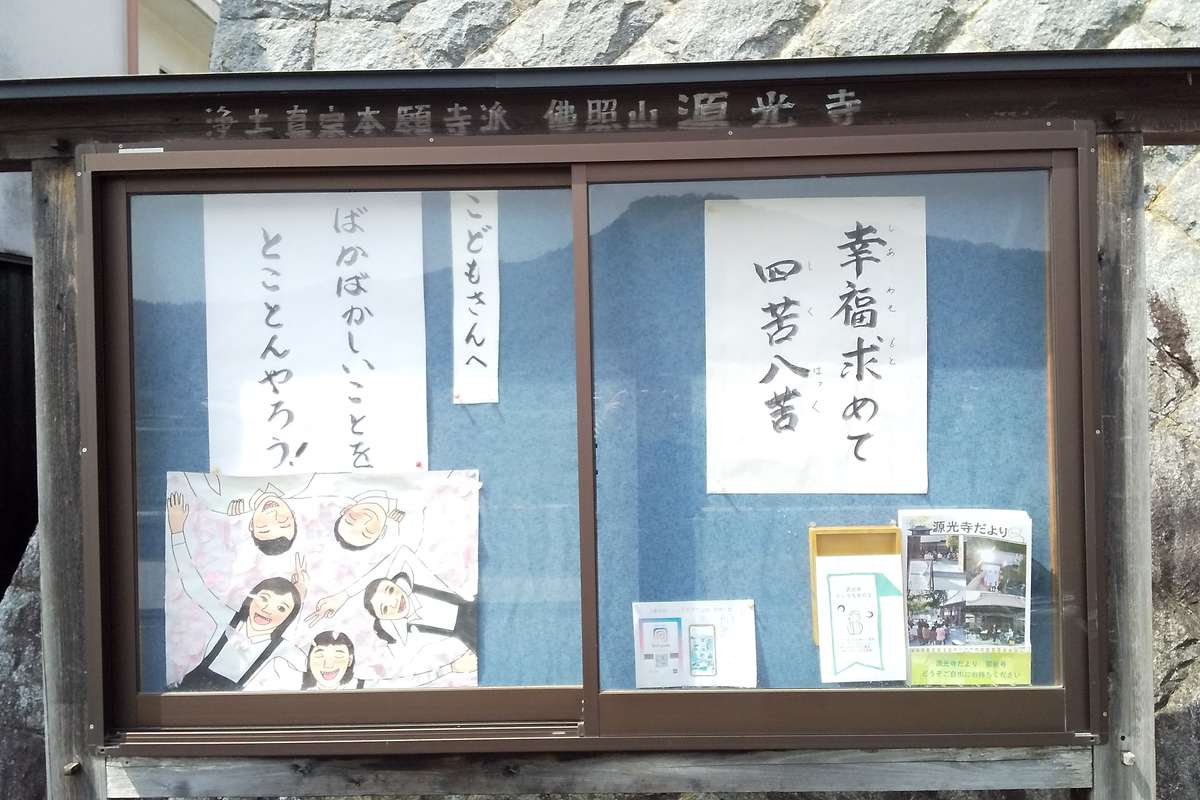 浄土真宗本願寺派 佛照山 源光寺
幸福求めて
しあわせもと
四苦八苦
しくはっく
こどもさんへ
ばかばかしいことを
とことんやろう!
源光寺だより
源光寺だより 最新号
どうぞご自由にお持ちください